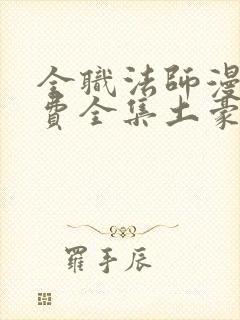 全職法師漫
費全集土豪
羅手辰